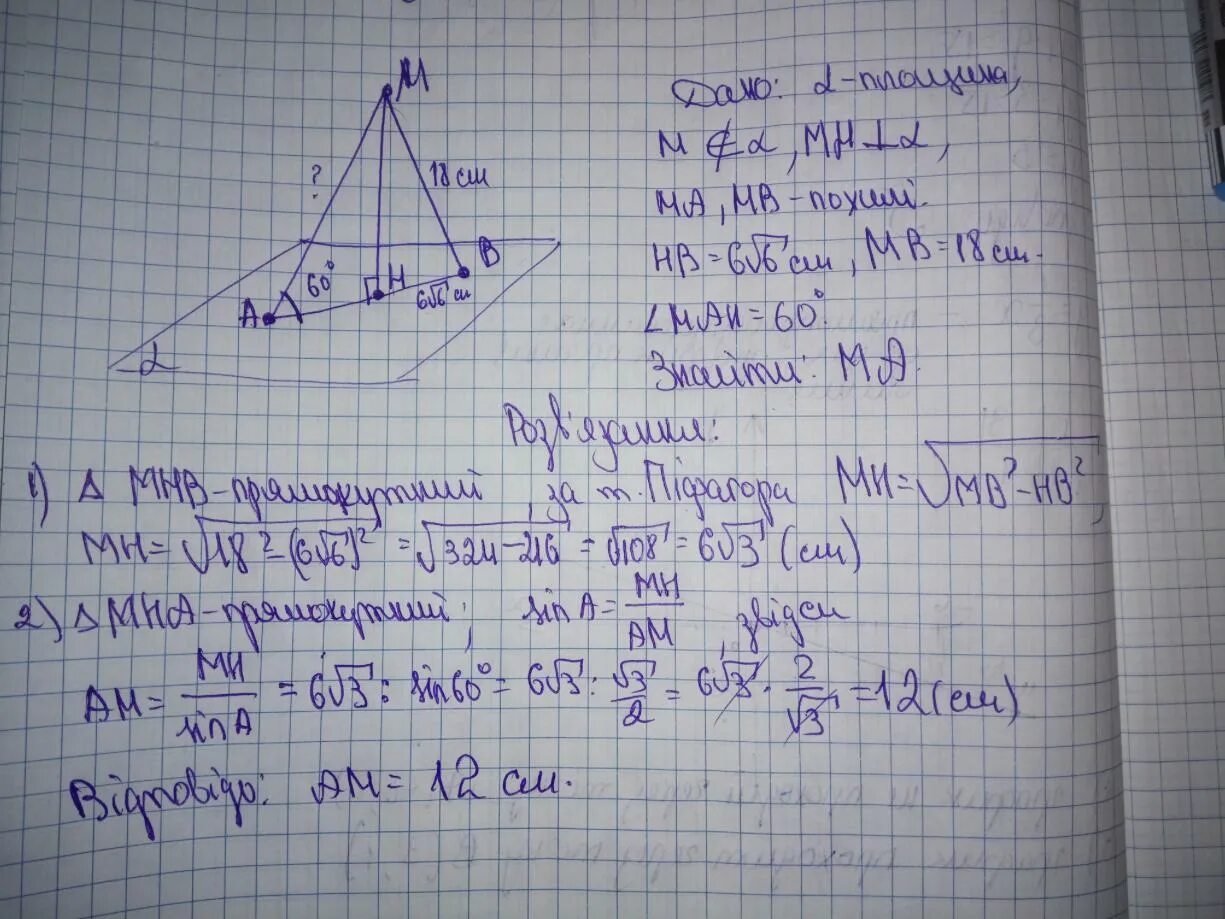 M
?
18 см
60°
A
H
B
6√6 см
α
Дано: α-площина,
M ∉ α, MH ⊥ α,
MA, MB - похилі.
HB = 6√6 см, MB = 18 см.
∠MAH = 60°.
Знайти: MA.
Розв'язання:
1) Δ MHB - прямокутний, за т. Піфагора MH = √(MB² - HB²),
MH = √(18² - (6√6)²) = √(324 - 216) = √108 = 6√3 (см)
2) Δ MHA - прямокутний; sin A = MH/AM, звідси
AM = MH/sin A = 6√3 : sin 60° = 6√3 : √3/2 = 6√3 · 2/√3 = 12 (см)
Відповідь: AM = 12 см.